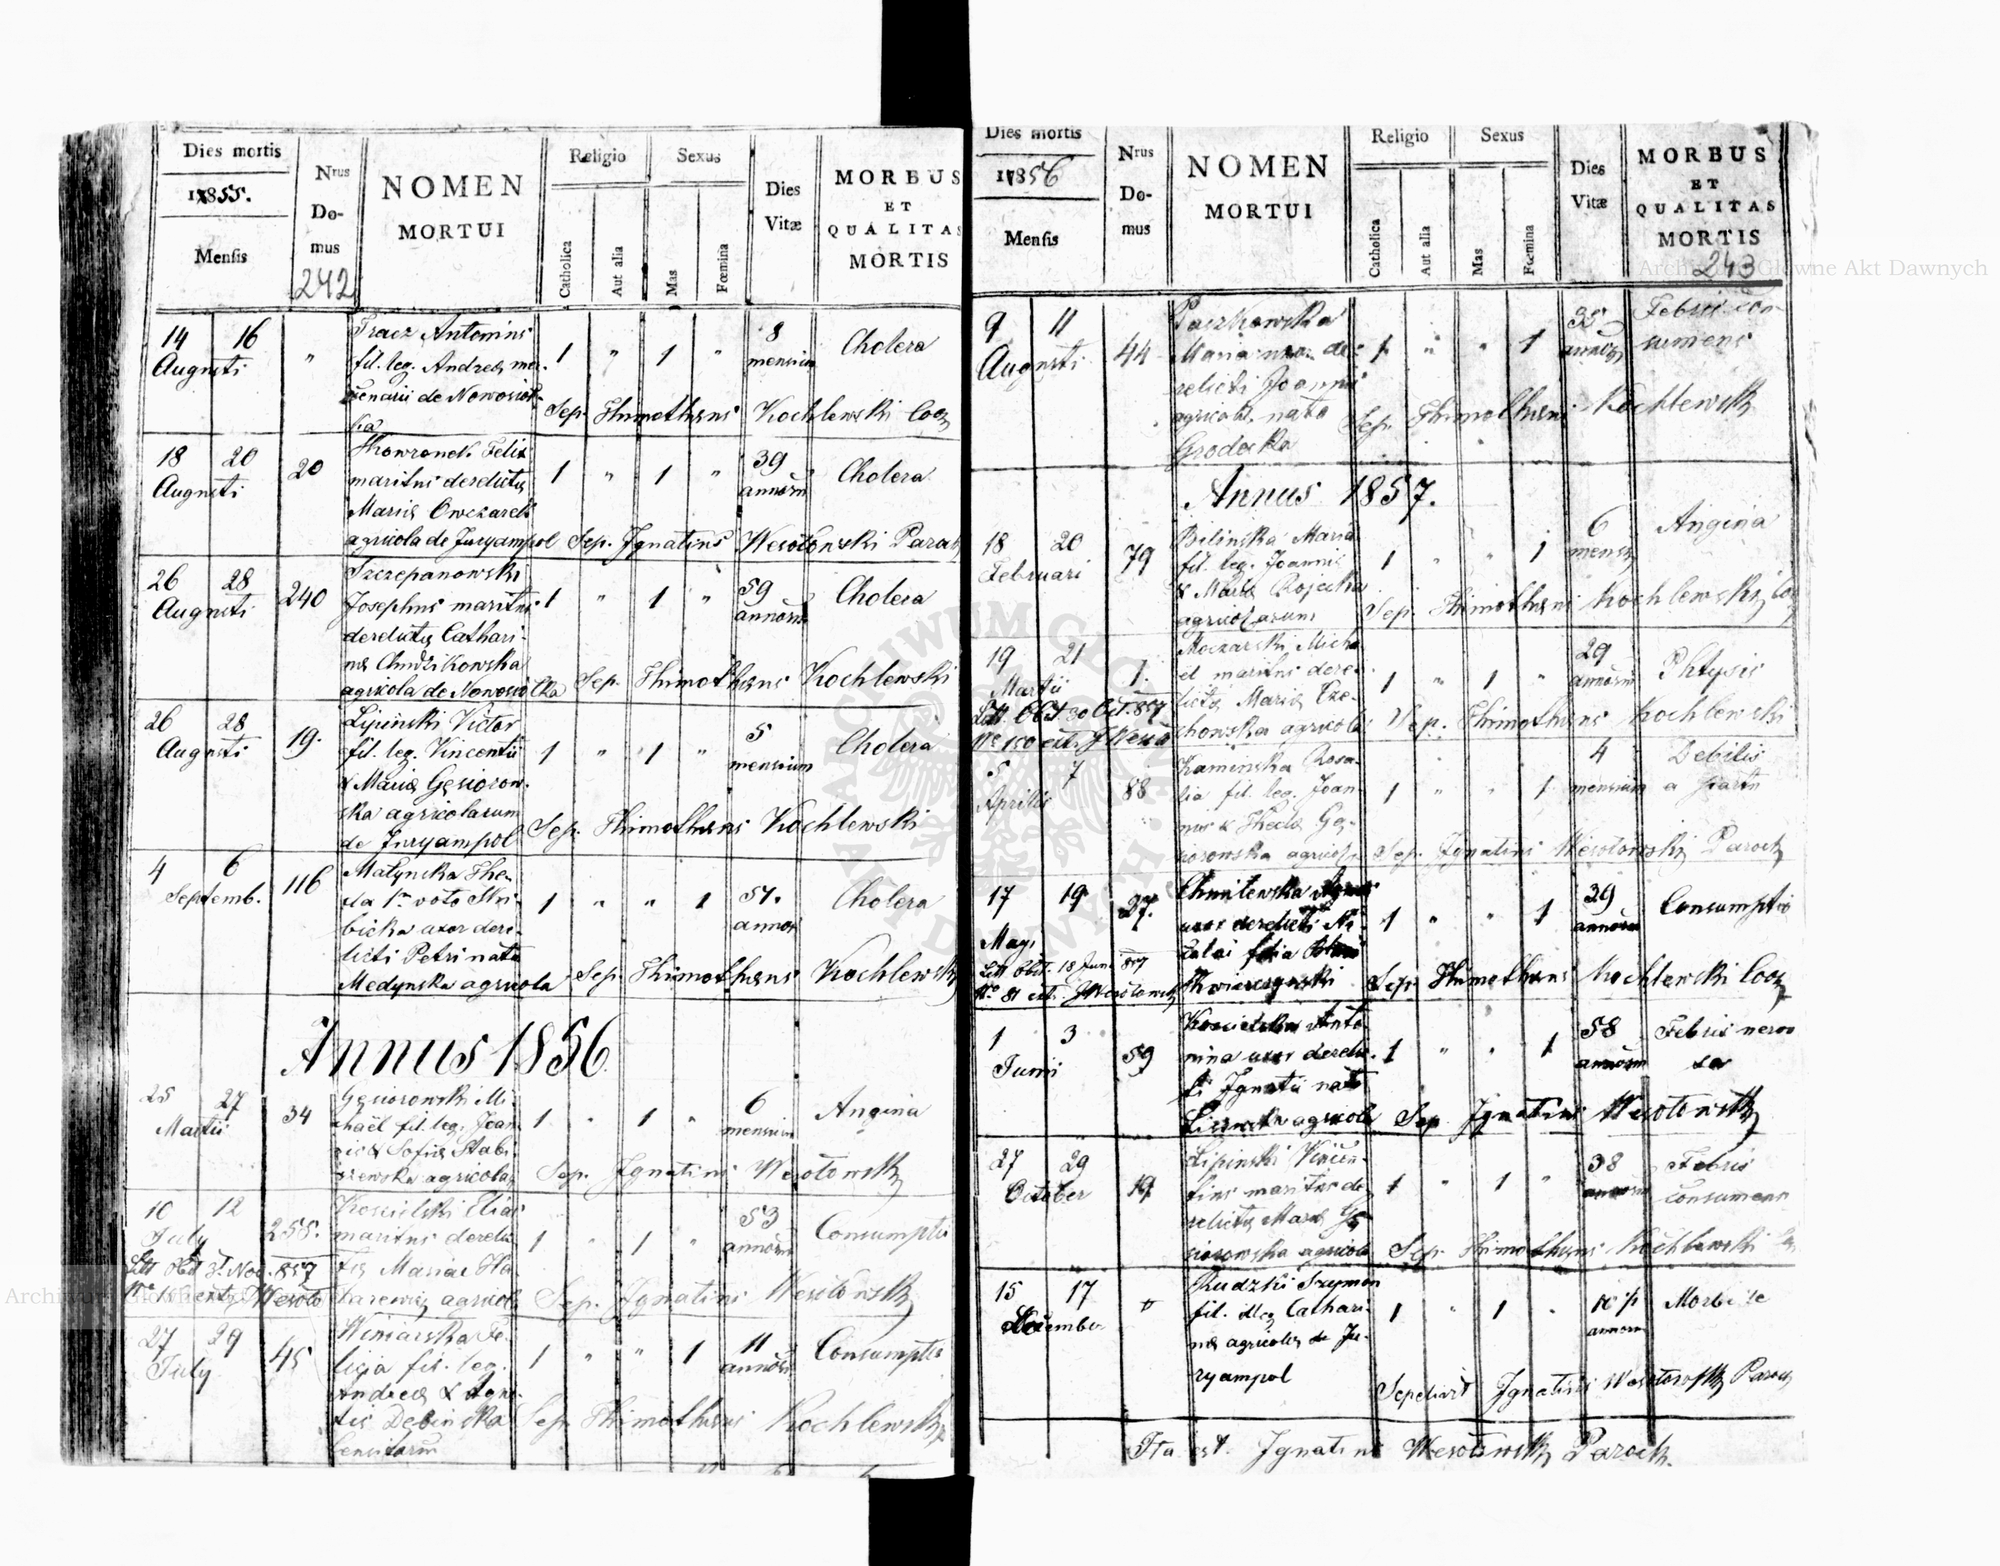 Dies mortis
1855.
Mensis
Nrus
Do-
mus
242
NOMEN
MORTUI
Religio
Catholica
Aut alia
Sexus
Mas
Fœmina
Dies
Vitæ
MORBUS
ET
QUALITAS
MORTIS
14 16
Augusti
"
Tracz Antonius
fil. leg. Andreæ mer-
cenarii de Nowosiół-
ka
1 " 1
8
mensium
Cholera
Sep. Thimotheus Kochlewski Coop
18 20
Augusti
20
Skowronek Felix
maritus derelictæ
Mariæ Owczarek
agricola de Juryampol
1 " 1 "
39
annorum
Cholera
Sep. Ignatius Wesołowski Paroch
26 28
Augusti
240
Szczepanowski
Josephus maritus
derelictæ Cathari-
næ Chudzikowska
agricola de Nowosiółka
1 " 1 "
59
annorum
Cholera
Sep. Thimotheus Kochlewski
26 28
Augusti
19.
Lipinski Victor
fil. leg. Vincentii
& Mariæ Gąsiorow-
ska agricolarum
de Juryampol
1 " 1 "
5
mensium
Cholera
Sep. Thimotheus Kochlewski
4 6
Septemb.
116
Małynska The-
cla 1mo voto
bicka uxor dere-
licti Petri nata
Medynska agricola
1 " " 1
51.
annor
Cholera
Sep. Thimotheus Kochlewski
Annus 1856.
25 27
Martii
34
Gąsiorowski Mi-
chaël fil. leg. Joan-
nis & Sofiæ Stabi-
szewska agricola
1 " 1 "
6
mensium
Angina
Sep. Ignatius Wesołowski
10 12
July
255.
Litt Obit 31. Nov. 857
Kościelski Elias
maritus derelic-
tæ Mariae
agricola
1 1 "
53
annorum
Consumptio
Sep. Ignatius Wesołowski
27 29
July
45
Winiarska Fe-
licia fil. leg.
Andreæ & Agne-
tis Debinska
1 " " 1
11
annorum
Consumptio
Sep. Thimotheus Kochlewski
Dies mortis
1856
Mensis
Nrus
Do-
mus
NOMEN
MORTUI
Religio
Catholica
Aut alia
Sexus
Mas
Fœmina
Dies
Vitæ
MORBUS
ET
QUALITAS
MORTIS
243
9 11
Augusti
44
Paczkowska
Maria uxor de-
relicti Joannis
agricola nata
Grodecka
1 " " 1
35
annorum
Febris con-
sumens
Sep. Thimotheus Kochlewski
Annus 1857.
18 20
Februari
79
Bilinska Maria
fil. leg. Joannis
& Mariæ
agricolarum
1 " " 1
6
mens
Angina
Sep. Thimotheus Kochlewski Coop
19 21
Martii
1.
Litt. Obit 30 Oct. 857
Moczarski Micha-
el maritus dere-
lictæ Mariæ Cze-
chowska agricola
1 " 1 "
29
annorum
Phtysis
Sep. Thimotheus Kochlewski
5 7
Aprilis
88
Kaminska Rosa-
lia fil. leg. Joan-
nis & Theclæ Gą-
siorowska agricol
1 " " 1
4
mensium
Debilis
a partu
Sep. Ignatius Wesołowski Paroch
17 19
May
27.
Litt Obit. 18 Juni 857
Chmilewska Agnes
uxor derelicti Ni-
colai filia
1 " " 1
39
annorum
Consumptio
Sep. Thimotheus Kochlewski Coop
1 3
Junii
59
Kościelska Anto-
nina uxor derelic-
ti Ignatii nata
agricola
1 " " 1
58
annorum
Febris nervo
sa
Sep. Ignatius Wesołowski
27 29
October
19
Lipinski Vincen-
tius maritus de-
relictæ Mariæ Gą-
siorowska agricola
1 1 "
38
annorum
Febris
consumens
Sep. Thimotheus Kochlewski
15 17
December
Rudzki Szymon
fil. illeg Cathari-
næ agricolæ de Ju-
ryampol
1 " 1 "
10 p
annorum
Sepelivit Ignatius Wesołowski Paroch
Ita est. Ignatius Wesołowski Paroch.
Archiwum Główne Akt Dawnych
ARCHIWUM GŁÓWNE AKT DAWNYCH
Archiwum Główne Akt Dawnych